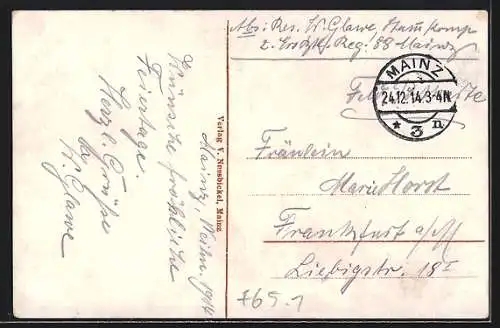 Mainz, Weihn. 1914
Wünsche fröhliche
Feiertage.
Herzl. Grüße
W. Glawe
Verlag V. Nussbickel, Mainz
Abs: Res. W. Glawe, Stam Komp
2. Ers Reg: 88 Mainz
MAINZ
24.12.14.3-4N.
* 3 n
Feldpostkarte
Fräulein
Marie Horst
Frankfurt a/M
Liebigstr. 18 I
765.1